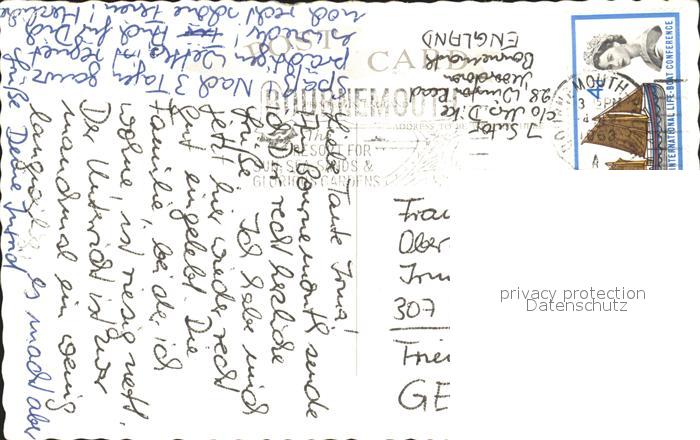 POST CARD
BOURNEMOUTH
THE
RESORT FOR
SUN SEA SANDS &
GLORIOUS GARDENS
INTERNATIONAL LIFE-BOAT CONFERENCE
BOURNEMOUTH
3 PM
1963
A
4D
ENGLAND
Bournemouth
28 Road
c/o Mrs. Dike
Liebe Tante Irma!
Aus Bournemouth sende
ich Dir recht herzliche
Grüße. Ich habe mich
jetzt hier wieder recht
gut eingelebt. Die
Familie, bei der ich
wohne, ist riesig nett.
Der Unterricht ist zwar
manchmal ein wenig
langweilig, es macht aber
Spaß. Nach 3 Tagen ganz
prächtigem Wetter ist regnet
es wieder! Und für Dich
noch recht schöne Ferien! Herzliche
Grüße Deine Astrid
Frau
Ober
Irm
307
Frie
GE
privacy protection
Datenschutz